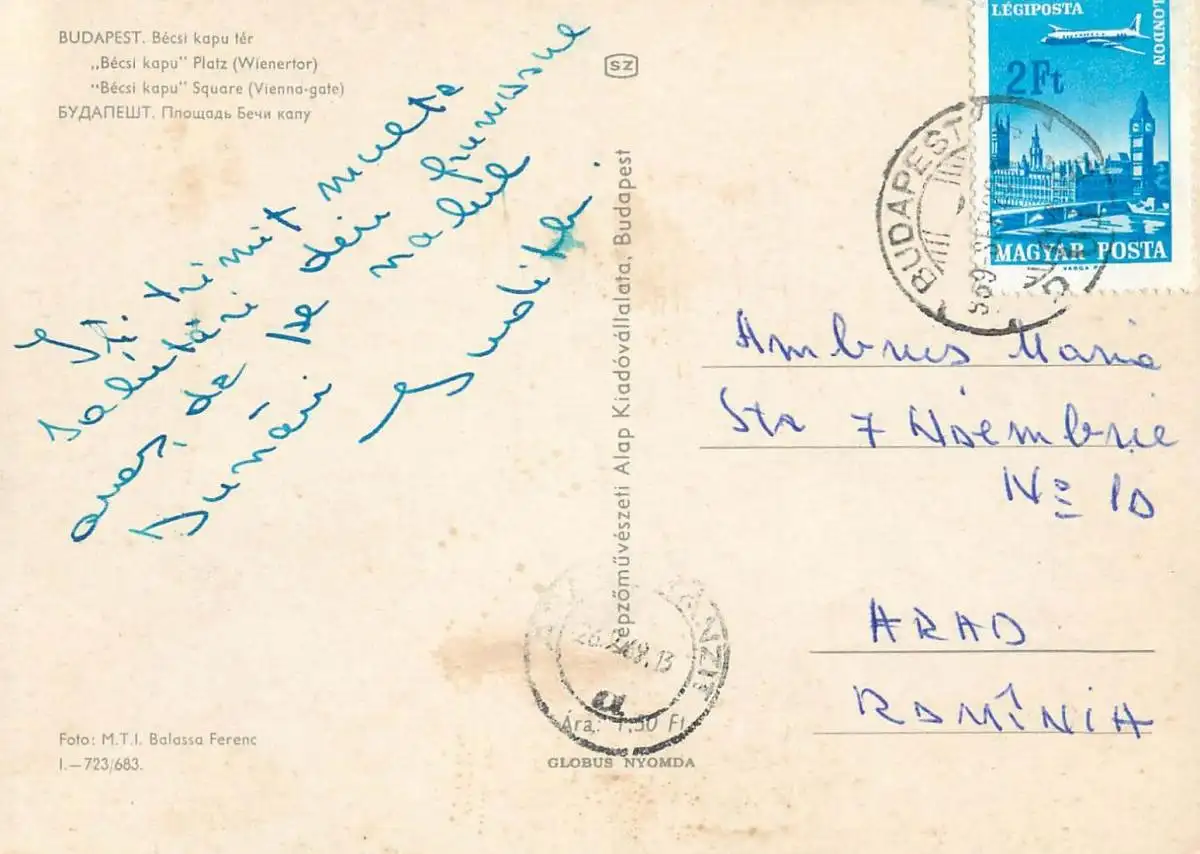 BUDAPEST. Bécsi kapu tér
„Bécsi kapu" Platz (Wienertor)
"Bécsi kapu" Square (Vienna-gate)
БУДАПЕШТ. Площадь Бечи капу
SZ
LÉGIPOSTA
LONDON
2Ft
MAGYAR POSTA
BUDAPEST
Iți trimit multe
salutări din frumosul
oraș, de pe malul
Dunării
Judith.
Képzőművészeti Alap Kiadóvállalata, Budapest
Ambrus Maria
Str 7 Noiembrie
No 10
ARAD
ROMÎNIA
26. 68.13
Ára: 1,50 Ft
GLOBUS NYOMDA
Foto: M.T.I. Balassa Ferenc
I.—723/683.